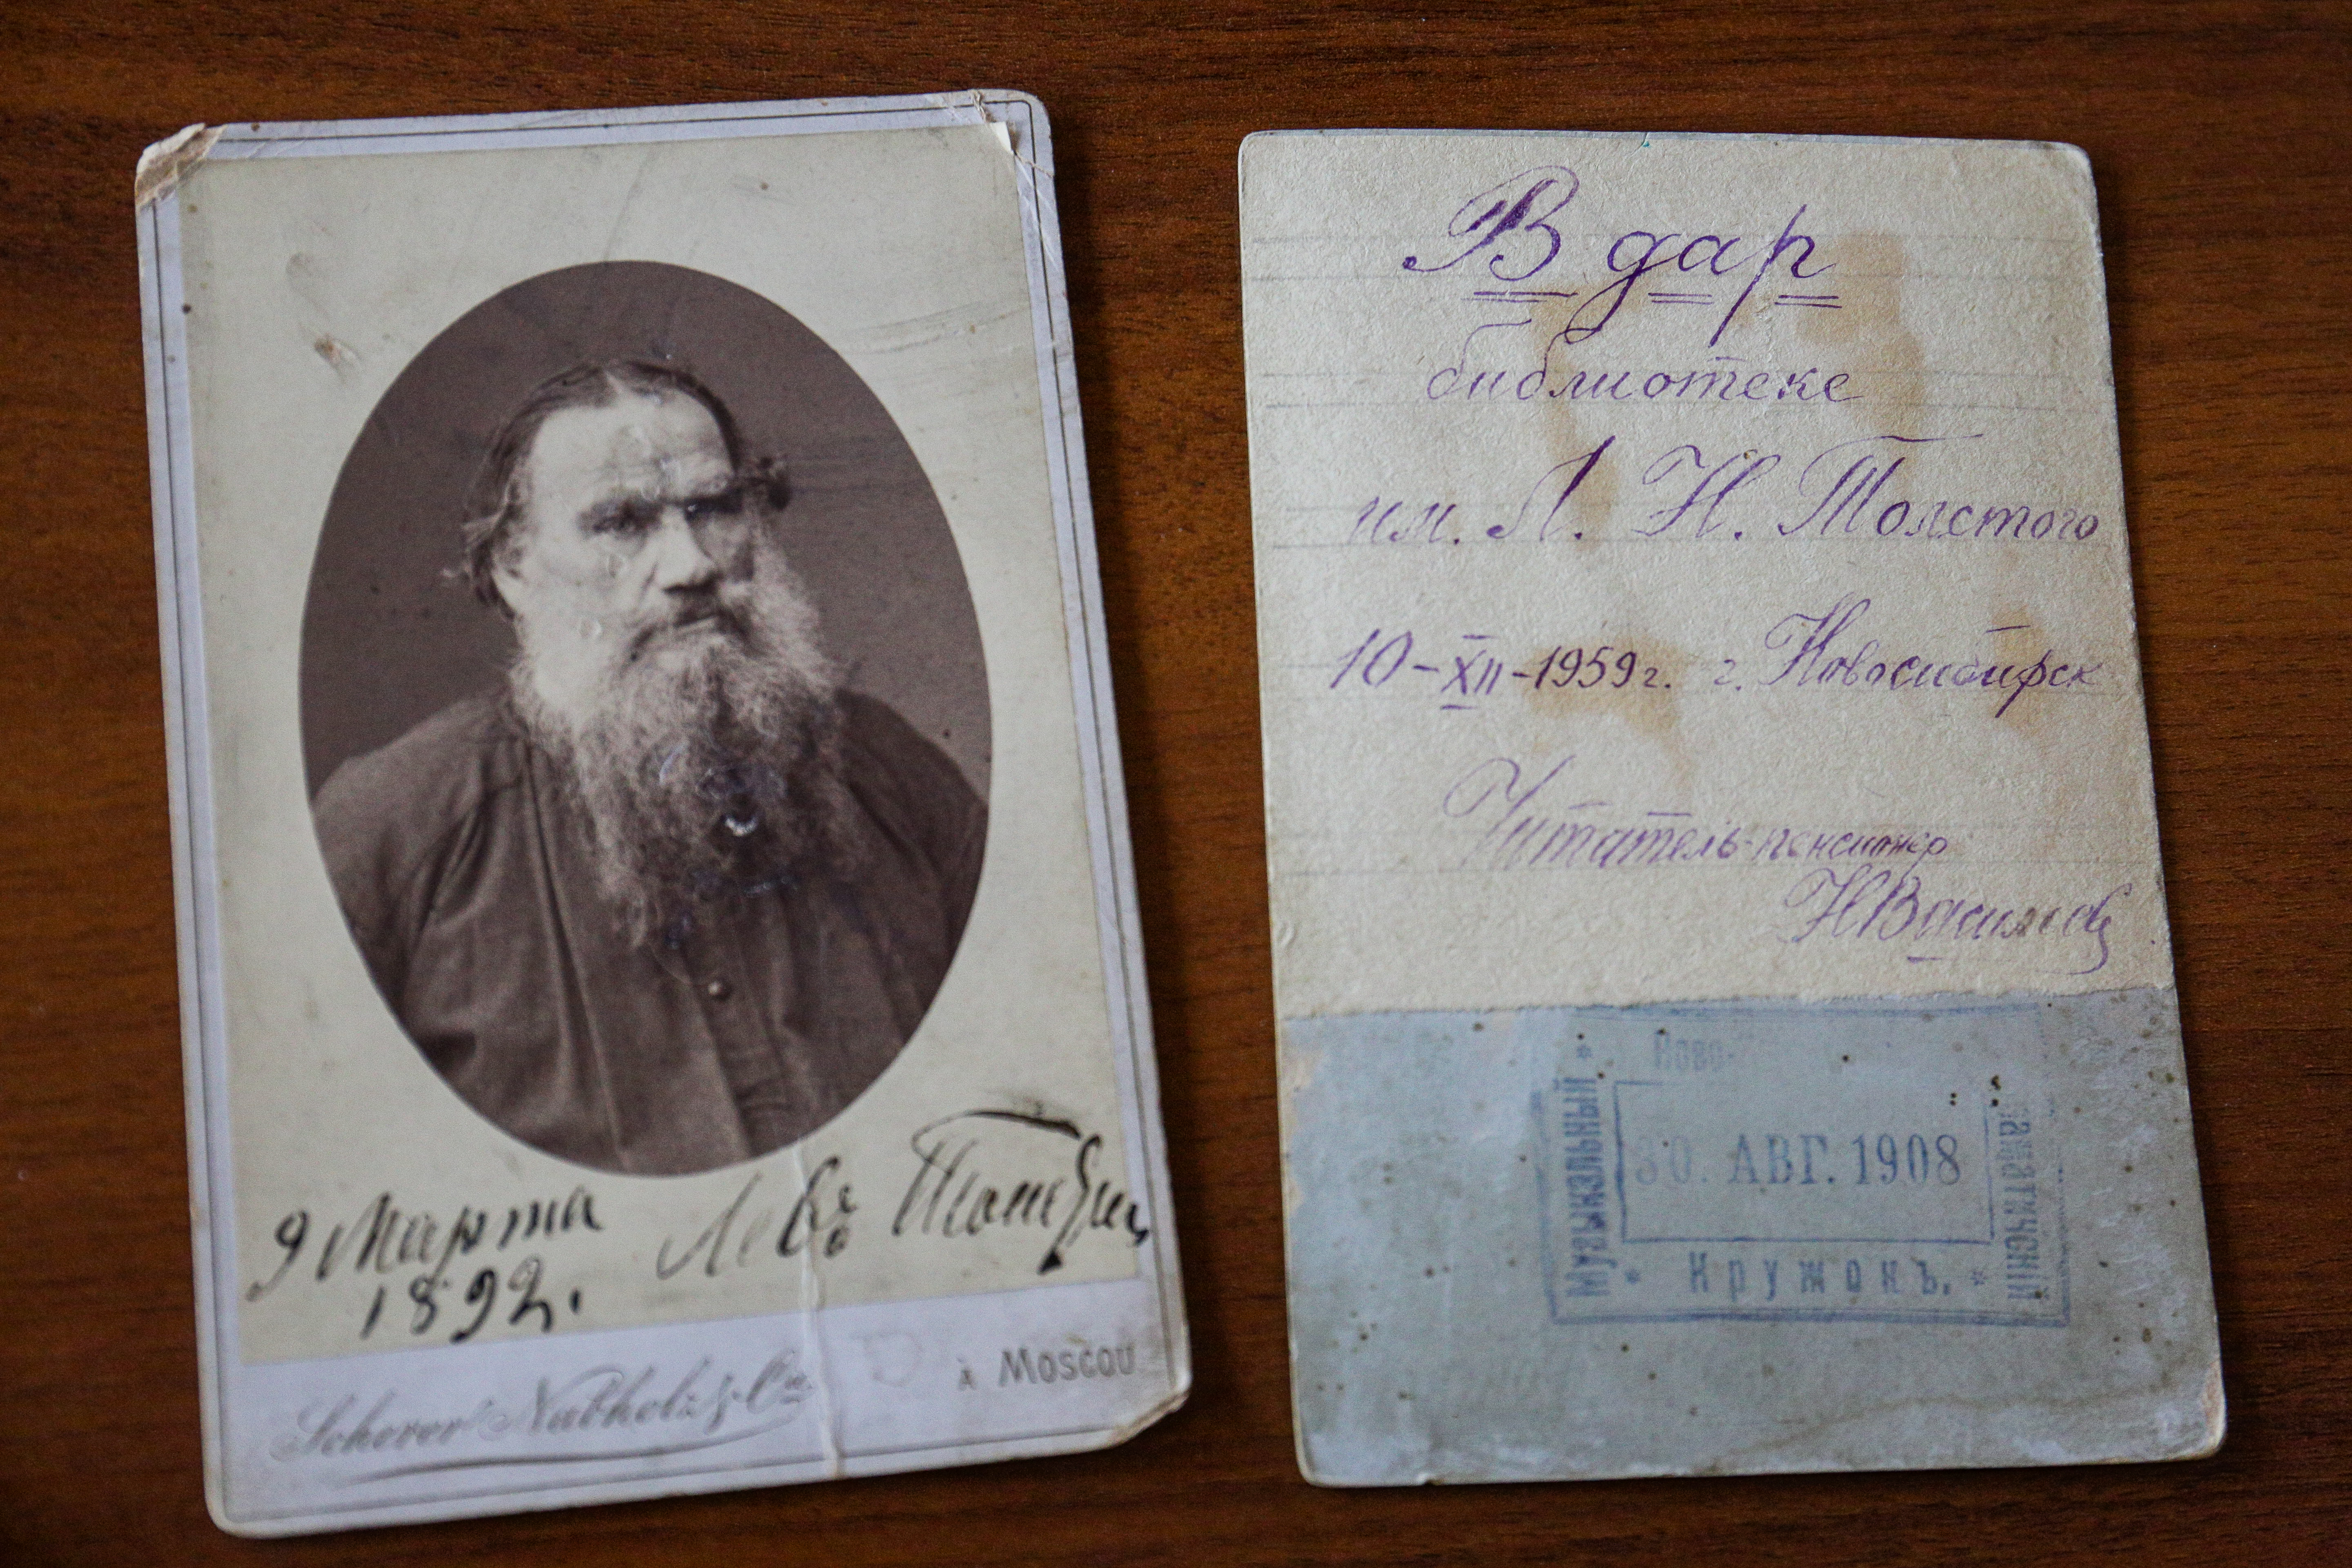 9 Марта
1892.
Левъ Толстой
Scherer Nabholz & Co.
à Moscou
В дар
библиотеке
им. Л. Н. Толстого
10-XII-1959г. г. Новосибирск
Читатель-пенсионер
НВасильев
Ново-
Музыкальный
30. АВГ. 1908
Кружокъ.